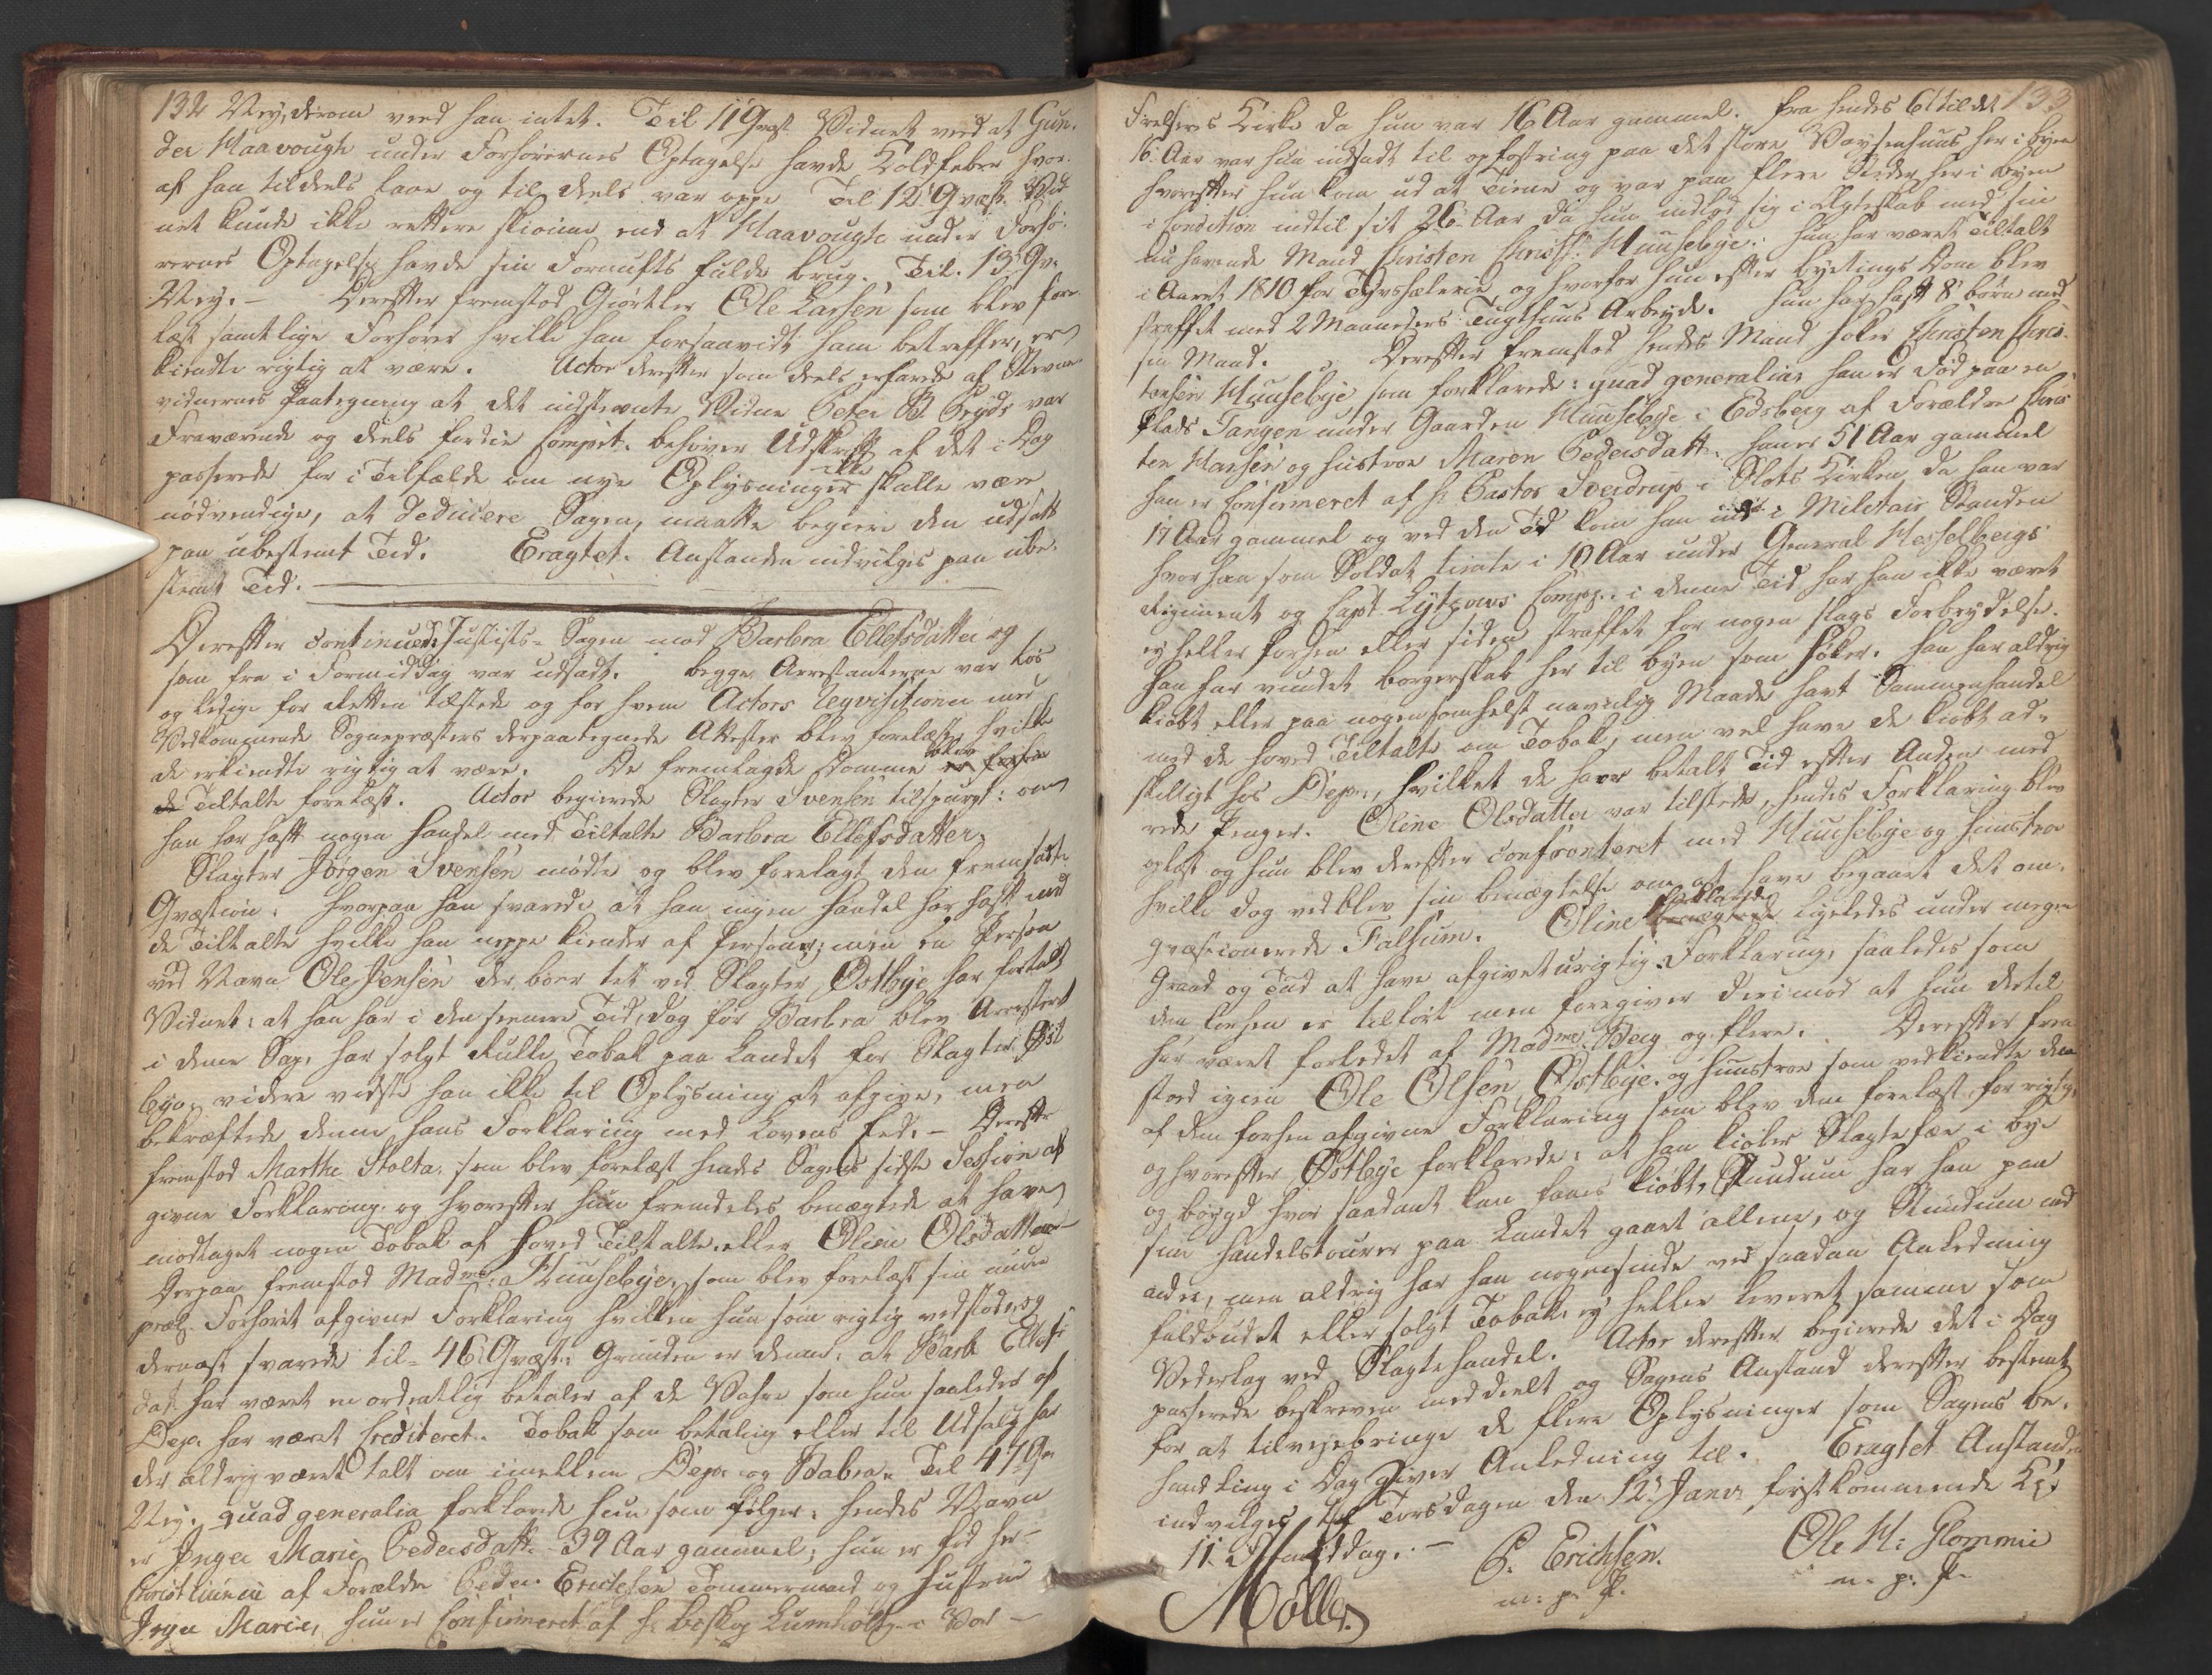 132 Nej, derom veed han intet. Til 11 Qvæst. Vidnet veed at Gun-
der Haavough under Forhørernes Optagelse havde Koldfeber hvor-
af han tildeels laae og tildeels var oppe Til 12 Qvæst. Vid-
net kunde ikke rettere skiønne end at Haavough under Forhø-
rernes Optagelse havde sin Fornufts fulde brug. Til 13 Qv.
Nej. – Derefter fremstod Giørtler Ole Larsen som blev fore-
læst samtlige Forhører hvilke han forsaavidt ham betreffer, er-
kiendte rigtig at være. Actor derefter som deels erfarede af Stevne
vidnernes Paategning at det indstevnte Vidne Peter
Fraværende og deels fordie Comp. behøver Udskrift af det i Dag
passerede for i Tilfælde om nye Oplysninger ikke skulle være
nødvendige, at deducere Sagen, maatte begiere den udsatt
paa ubestemt Tid. Eragtet. Anstanden indvilges paa ube-
stemt Tid.
Derefter continuerede Justits-Sagen mod Barbra Ellefsdatter og
som fra i Formiddag var udsadt. begge Arrestanterne var løs
og ledige for Retten tilstede og for hvem Actors Reqvisitioner med
Vedkommende Sognepræsters derpaategnede Attester blev forelæst, hvilke
de erkiendte rigtig at være. De fremlagde Domme blev
de Tiltalte forelæst. Actor begierede Slagter Svensen tilspurgt: om
han har hafft nogen handel med Tiltalte Barbra Ellefsdatter.
Slagter Jørgen Svensen mødte og blev forelagt den fremsatte
Qvæstion. hvorpaa han svarede at han ingen handel har hafft med
de Tiltalte hvilke han neppe kiender af Person; men en Person
ved Navn Ole Jensen der boer tet ved Slagter Østbye har fortalt
Vidnet: at han har i den seenere Tid, dog før Barbra blev Arresteret
i denne Sag, har solgt Rulle Tobak paa Landet for Slagter Øst
bye, videre vidste han ikke til Oplysning at afgive, men
bekræftede denne hans Forklaring med Lovens Eed. – Derefter
fremstod Marthe Stolta, som blev forelæst hendes Sagens sidste Session af
givne Forklaring og hvorefter hun fremdeles benægtede at have
modtaget nogen Tobak af hoved Tiltalte eller Oline Olsdatter –
Derpaa fremstod Madme. Huusebye, som blev forelæst sin under
præl. Forhøret afgivne Forklaring hvilken hun som rigtig vedstod, og
dernæst svarede til 46 Qvæst.: Grunden er denne: at Barb. Ellefs
dat. har været en ordentlig betaler af de Vahre som hun saaledes af
Dep. har været Crediteret. Tobak som betaling eller til Udsalg har
der aldrig været talt om imellem Dep. og Babra. Til 47 Qv.
Nej. quad generalia forklarede hun som følger. hendes Navn
er Inger Marie Pedersdatt. 39 Aar gammel; hun er fød her
Christiania af Forældre Peder Erichsen Tømmermand og hustrue
Inger Marie, hun er Confirmeret af H. biskop Lumholtz i Vor –
133
Frelseres Kirke da hun var 16 Aar gammel. Fra hendes 6t til det
16 Aar var hun indsadt til opfostring paa det store Vaysenhuus her i byen
hvorefter hun kom ud at tiene og var paa flere Steder her i byen
i Condition indtil sit 26 Aar da hun indlod sig i Ægteskab med sin
nu havende Mand Christen Christ. Huusebye. hun har været tiltalt
i Aaret 1810 for Tyvshælerie og hvorfor hun efter bytings Dom blev
straffet med 2 Maaneders Tugthuus Arbeyde. hun har hafft 8 børn med
sin Mand. Derefter fremstod hendes Mand Høker Christen Chris-
tensen Huusebye som forklarede: quad generalia; han er Fød paa en
Plads Tangen under Gaarden Huusebye i Edsberg af Forældre Chris-
ten Hansen og Hustrue Maren Pedersdatt. han er 51 Aar gammel
han er Confirmeret af H. Pastor Sverdrup i Slots Kirken da han var
17 Aar gammel og ved den Tid kom han ind i Militair Standen
hvor han som Soldat tiente i 10 Aar under General Hesselbergs
Regiment og Capt. Lytzows Comp. i denne Tid har han ikke været
ey heller forhen eller siden straffet for nogen slags Forbrydelse.
han har vundet borgerskab her til byen som Høker. han har aldrig
kiøbt eller paa nogensomhelst navnlig Maade havt Sammenhandel
med de hoved Tiltalte om Tobak, men vel have de kiøbt ad-
skilligt hos Dep., hvilket de have betalt Tid efter Anden med
rede Penger. Oline Olsdatter var tilstede, hendes Forklaring blev
oplæst og hun blev derefter confronteret med Huusebye og Huustroe
hvilke dog vedblev sin benægtelse om at have begaaet det om-
qvæstionerede Falsum. Oline forklarede ligeledes under megen
Graad og Eed at have afgivet urigtig Forklaring, saaledes som
den forhen er tilført men foregiver derimod at hun dertil
har været forledet af Madme. Berg og flere. Derefter frem
stod igien Ole Olsen Østbye og huustroe som vedkiendte den
af dem forhen afgivne Forklaring som blev dem forelæst for rigtig,
og hvorefter Østbye forklarede: at han kiøber Slagtefæe i bye
og bøygd hvor saadant kan faaes kiøbt, Stundum har han paa
sine Handelstourer paa Landet gaaet allene, og Stundum med
andre, men aldrig har han nogensinde ved saadan Anledning
faldbudet eller solgt Tobak, ey heller leveret samme som
Vederlag ved Slagtehandel. Actor derefter begierede det i Dag
passerede beskreven meddeelt og Sagens Anstand derefter bestemt
for at tilvejebringe de flere Oplysninger som Sagens be-
handling i Dag giver Anledning til. Eragtet Anstanden
indvilges til Torsdagen den 12 Janv. førstkommende Kl.
11 Formiddag. –
Møller P. Erichsen. Ole H: Glommie
m. p. P. m. p. P.